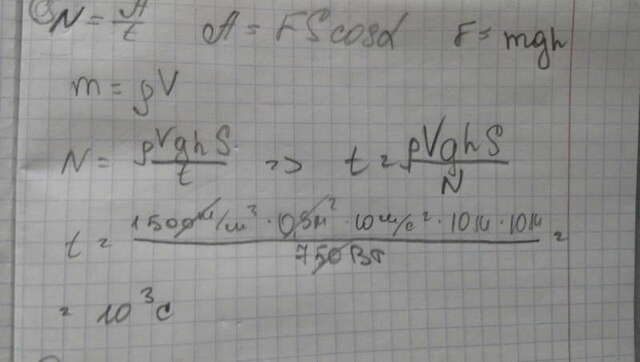 N = A/t A = FS cosα F = mgh
m = ρV
N = ρVghS/t => t = ρVghS/N
t = 1500 кг/м³ · 0,5м² · 10 м/с² · 10м · 10м / 750Вт =
= 10³ с